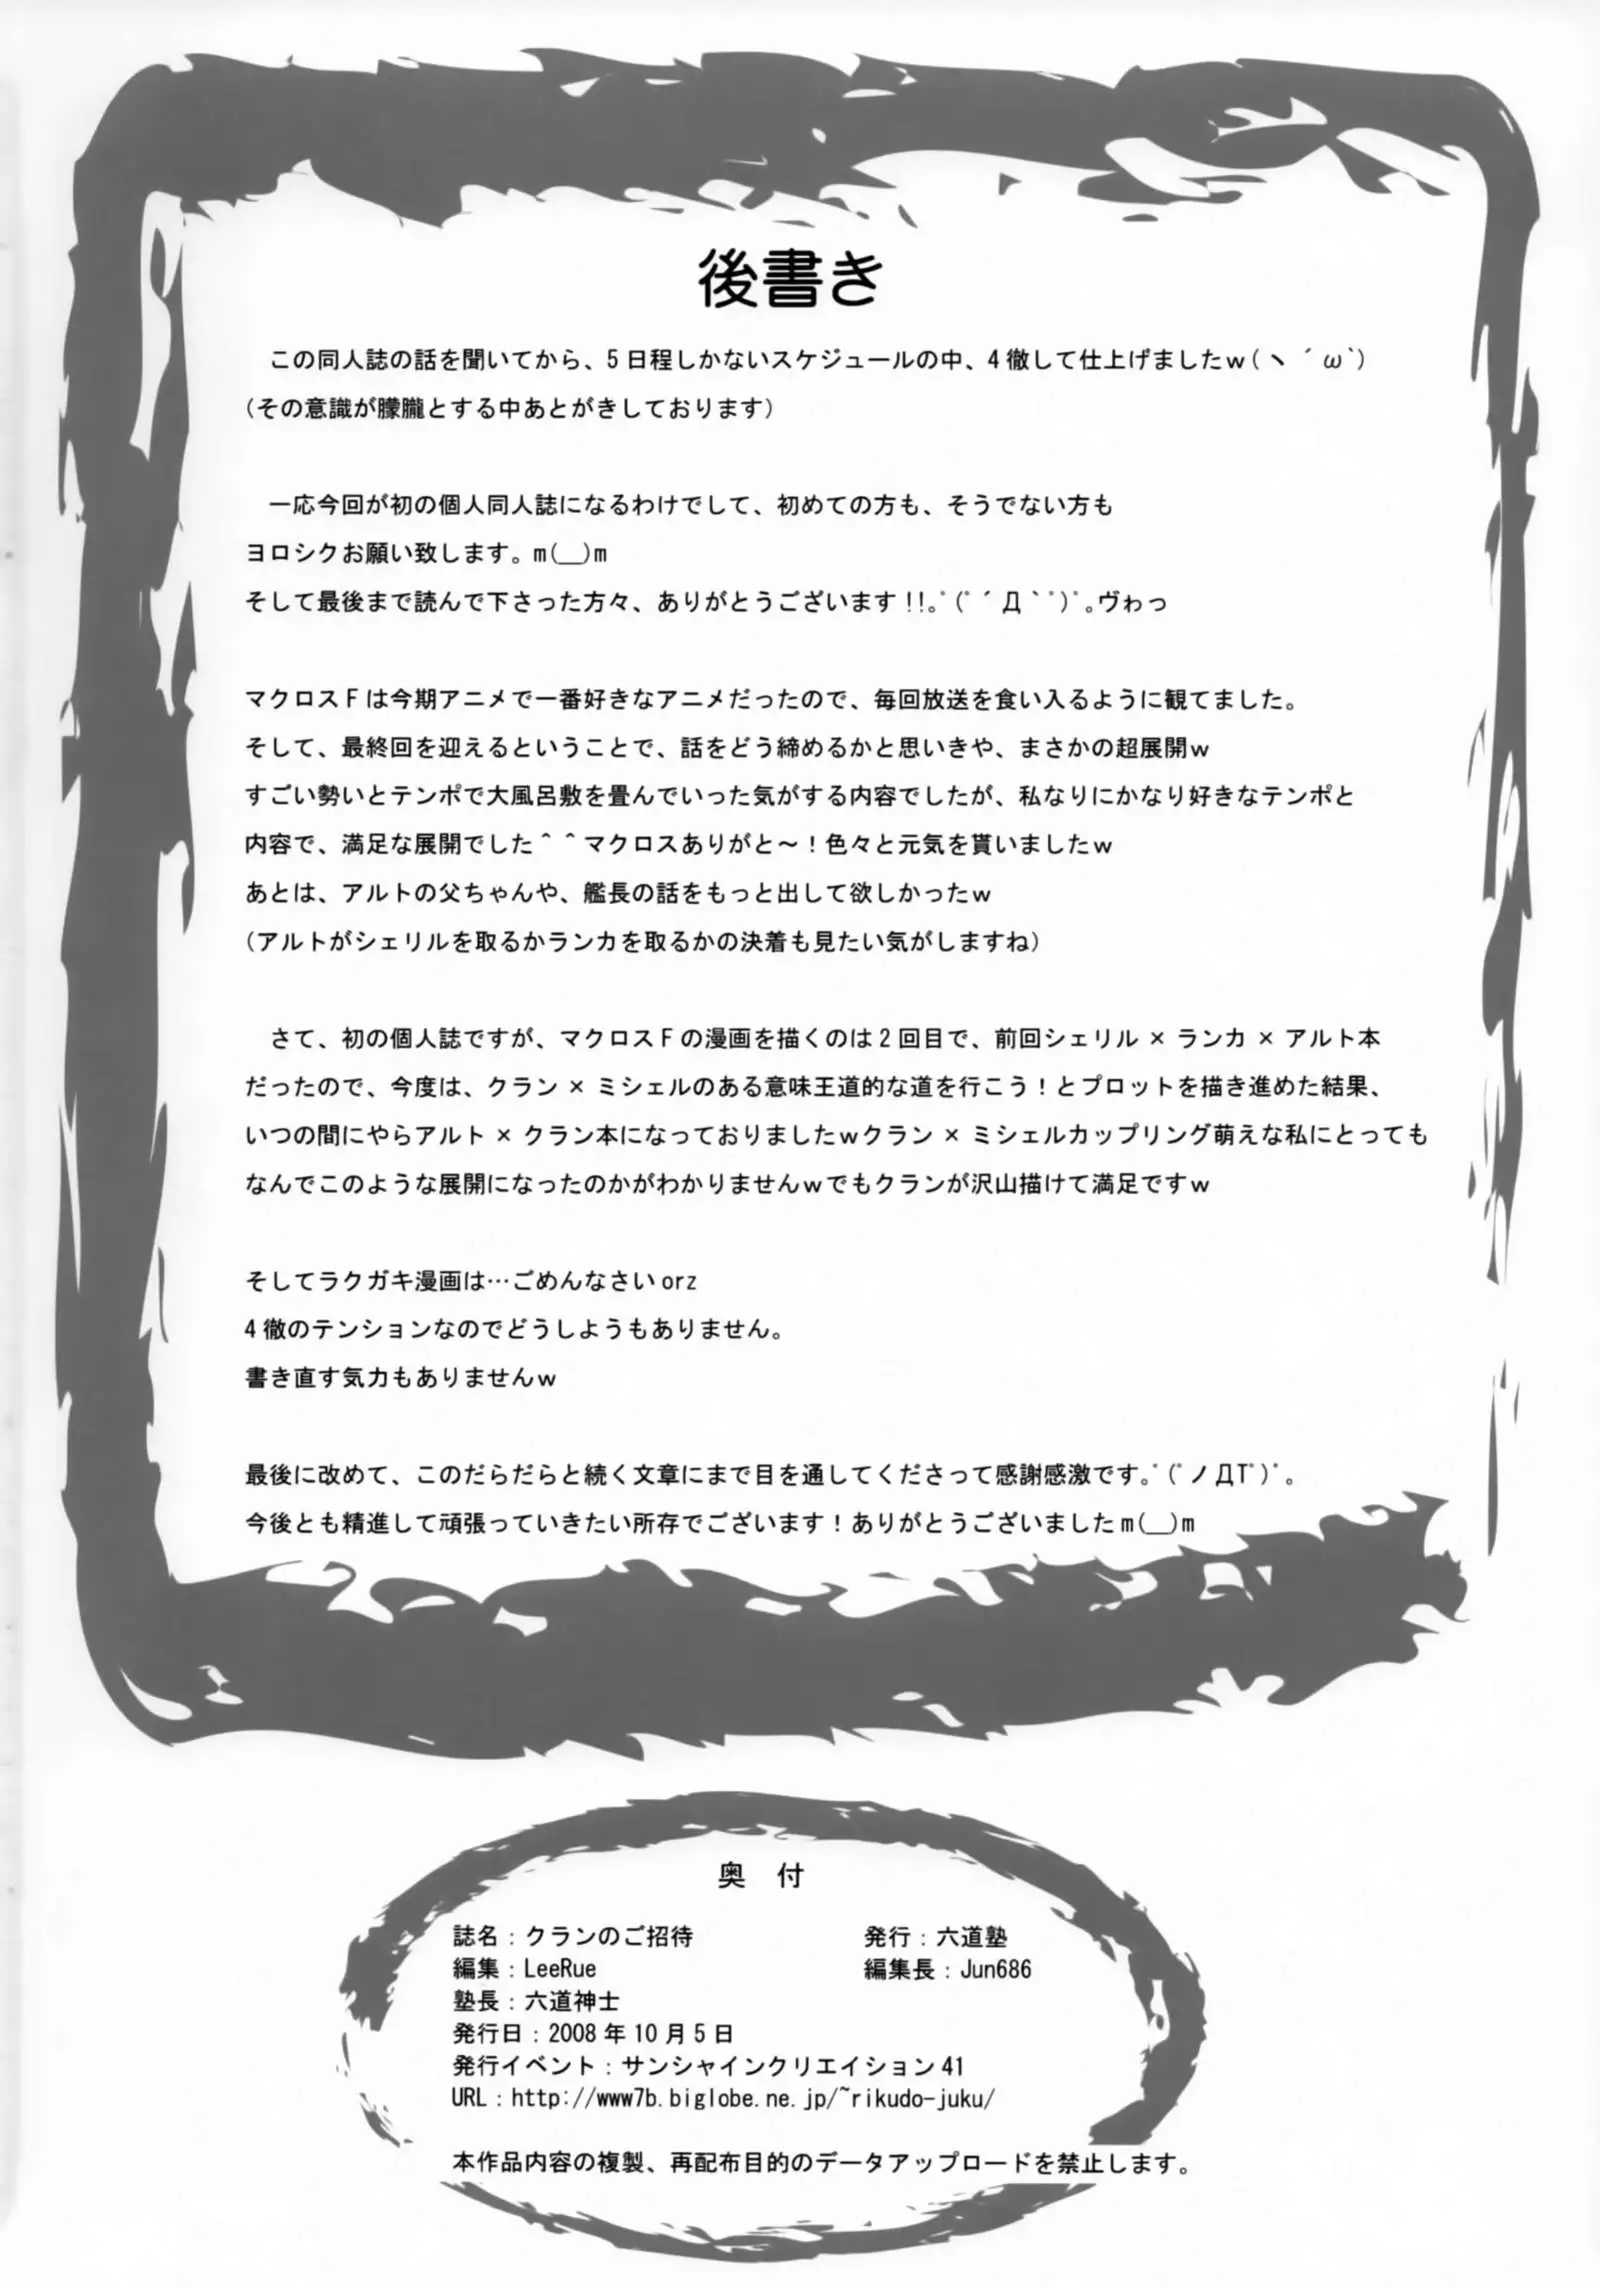 後書き
この同人誌の話を聞いてから、5日程しかないスケジュールの中、4徹して仕上げましたｗ(ヽ´ω`)
(その意識が朦朧とする中あとがきしております)
一応今回が初の個人同人誌になるわけでして、初めての方も、そうでない方も
ヨロシクお願い致します。m(__)m
そして最後まで読んで下さった方々、ありがとうございます!!｡ﾟ(ﾟ´Д｀ﾟ)ﾟ｡ヴゎっ
マクロスFは今期アニメで一番好きなアニメだったので、毎回放送を食い入るように観てました。
そして、最終回を迎えるということで、話をどう締めるかと思いきや、まさかの超展開ｗ
すごい勢いとテンポで大風呂敷を畳んでいった気がする内容でしたが、私なりにかなり好きなテンポと
内容で、満足な展開でした＾＾マクロスありがと～！色々と元気を貰いましたｗ
あとは、アルトの父ちゃんや、艦長の話をもっと出して欲しかったｗ
(アルトがシェリルを取るかランカを取るかの決着も見たい気がしますね)
さて、初の個人誌ですが、マクロスFの漫画を描くのは2回目で、前回シェリル×ランカ×アルト本
だったので、今度は、クラン×ミシェルのある意味王道的な道を行こう！とプロットを描き進めた結果、
いつの間にやらアルト×クラン本になっておりましたｗクラン×ミシェルカップリング萌えな私にとっても
なんでこのような展開になったのかがわかりませんｗでもクランが沢山描けて満足ですｗ
そしてラクガキ漫画は…ごめんなさいorz
4徹のテンションなのでどうしようもありません。
書き直す気力もありませんｗ
最後に改めて、このだらだらと続く文章にまで目を通してくださって感謝感激です｡ﾟ(ﾟノДTﾟ)ﾟ｡
今後とも精進して頑張っていきたい所存でございます！ありがとうございましたm(__)m
奥 付
誌名：クランのご招待 発行：六道塾
編集：LeeRue 編集長：Jun686
塾長：六道神士
発行日：2008年10月5日
発行イベント：サンシャインクリエイション41
URL：http://www7b.biglobe.ne.jp/~rikudo-juku/
本作品内容の複製、再配布目的のデータアップロードを禁止します。